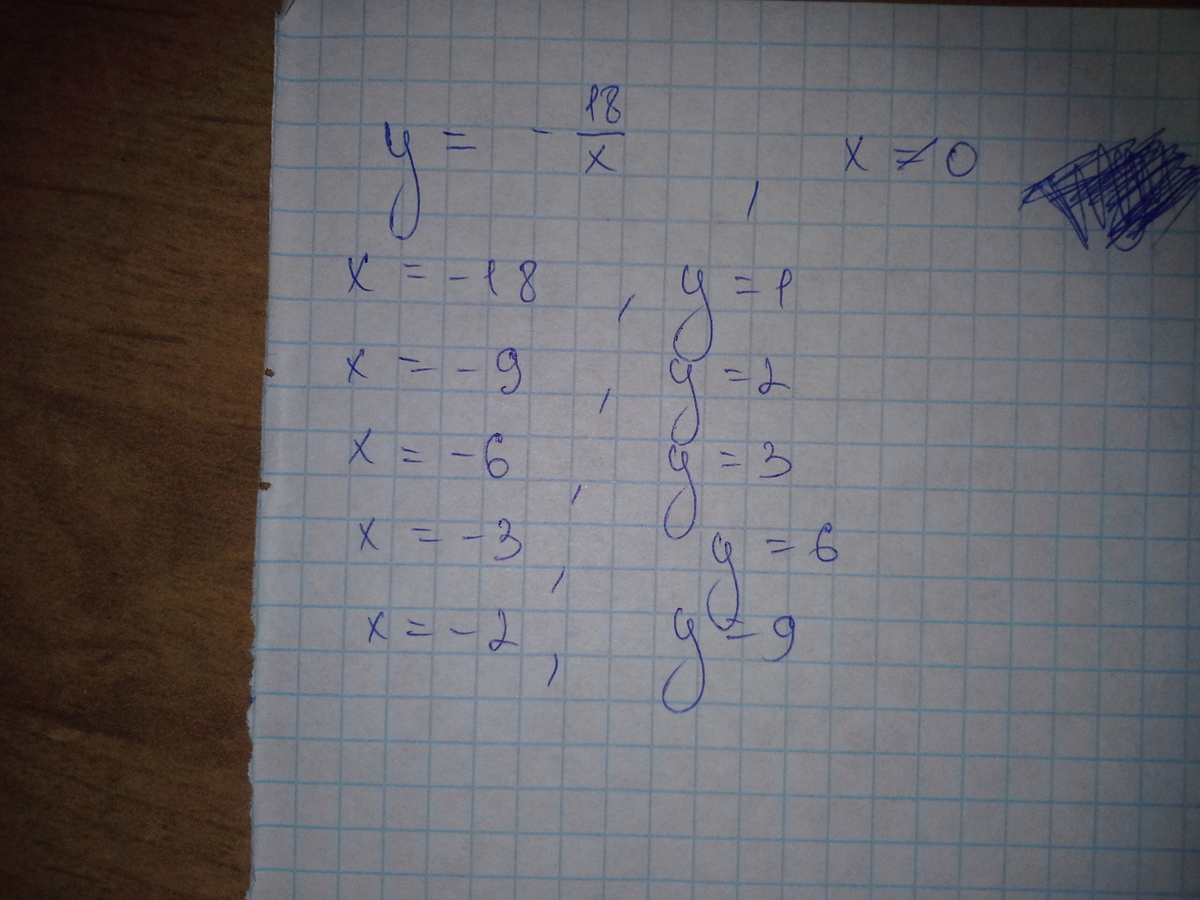 y = - 18/x , x ≠ 0
x = -18 , y = 1
x = -9 , y = 2
x = -6 , y = 3
x = -3 , y = 6
x = -2 , y = 9